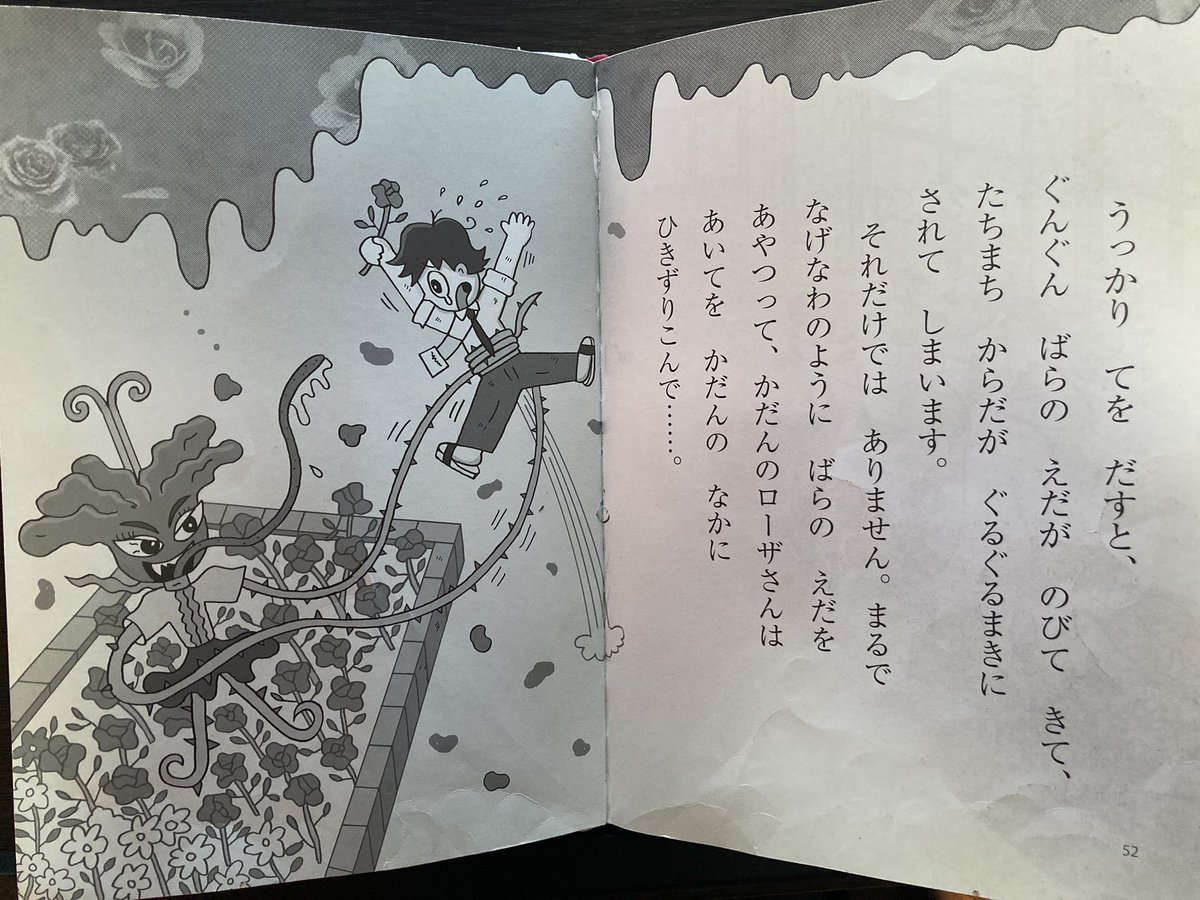 うっかり　てを　だすと、
ぐんぐん　ばらの　えだが　のびて　きて、
たちまち　からだが　ぐるぐるまきに
されて　しまいます。
それだけでは　ありません。まるで
なげなわのように　ばらの　えだを
あやつって、かだんのローザさんは
あいてを　かだんの　なかに
ひきずりこんで……。
52